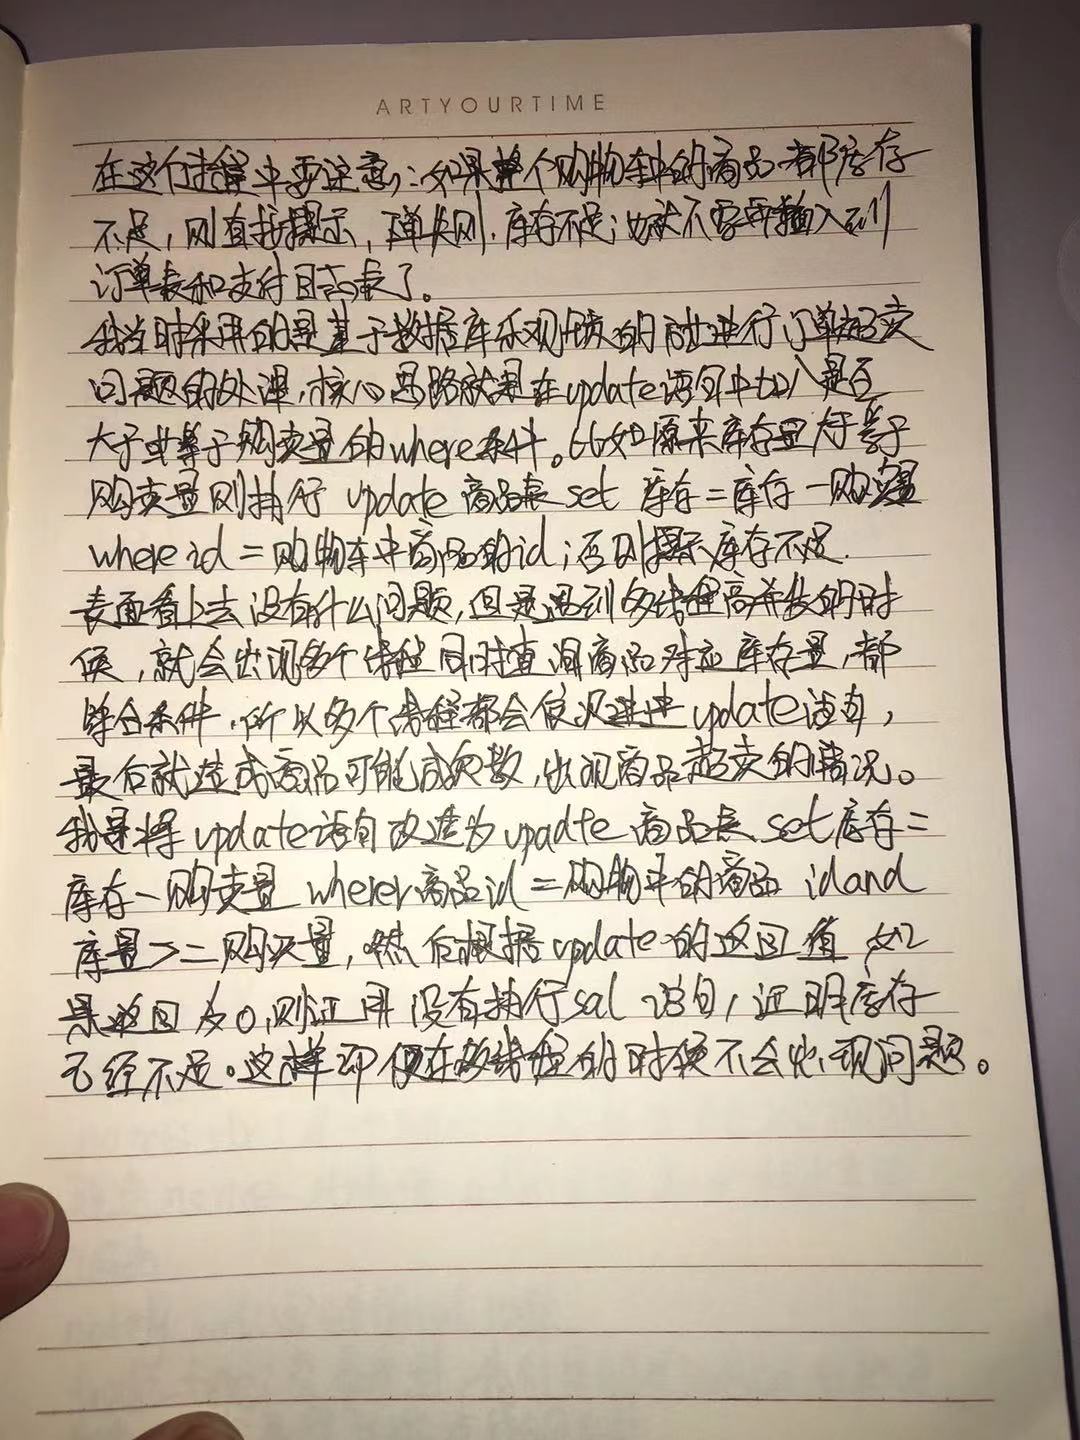 ARTYOURTIME
在这个过程中要注意:如果整个购物车中的商品都库存
不足,则直接提示,下单失则.库存不足;也就不要再插入到
订单表和支付日志表了。
我当时采用的是基于数据库乐观锁的 进行订单超卖
问题的处理,核心思路就是在update语句中加入是否
大于或等于购卖量的where条件。比如原来库存量大于等于
购卖量则执行 update 商品表 set 库存=库存-购买量
where id=购物车中商品的id;否则提示库存不足.
表面看上去没有什么问题,但是遇到多线程高并发的时
候,就会出现多个线程同时查询商品对应库存量,都
符合条件,所以多个线程都会依次进 update语句,
最后就造成商品可能成负数,出现商品超卖的情况。
我是将update语句改造为upadte 商品表 set库存=
库存-购卖量 wherer商品id=购物中的商品 idand
库量>=购买量,然后根据update的返回值 如
果返回为0,则证明没有执行sql语句,证明库存
已经不足。这样即便在多线程的时候不会出现问题。